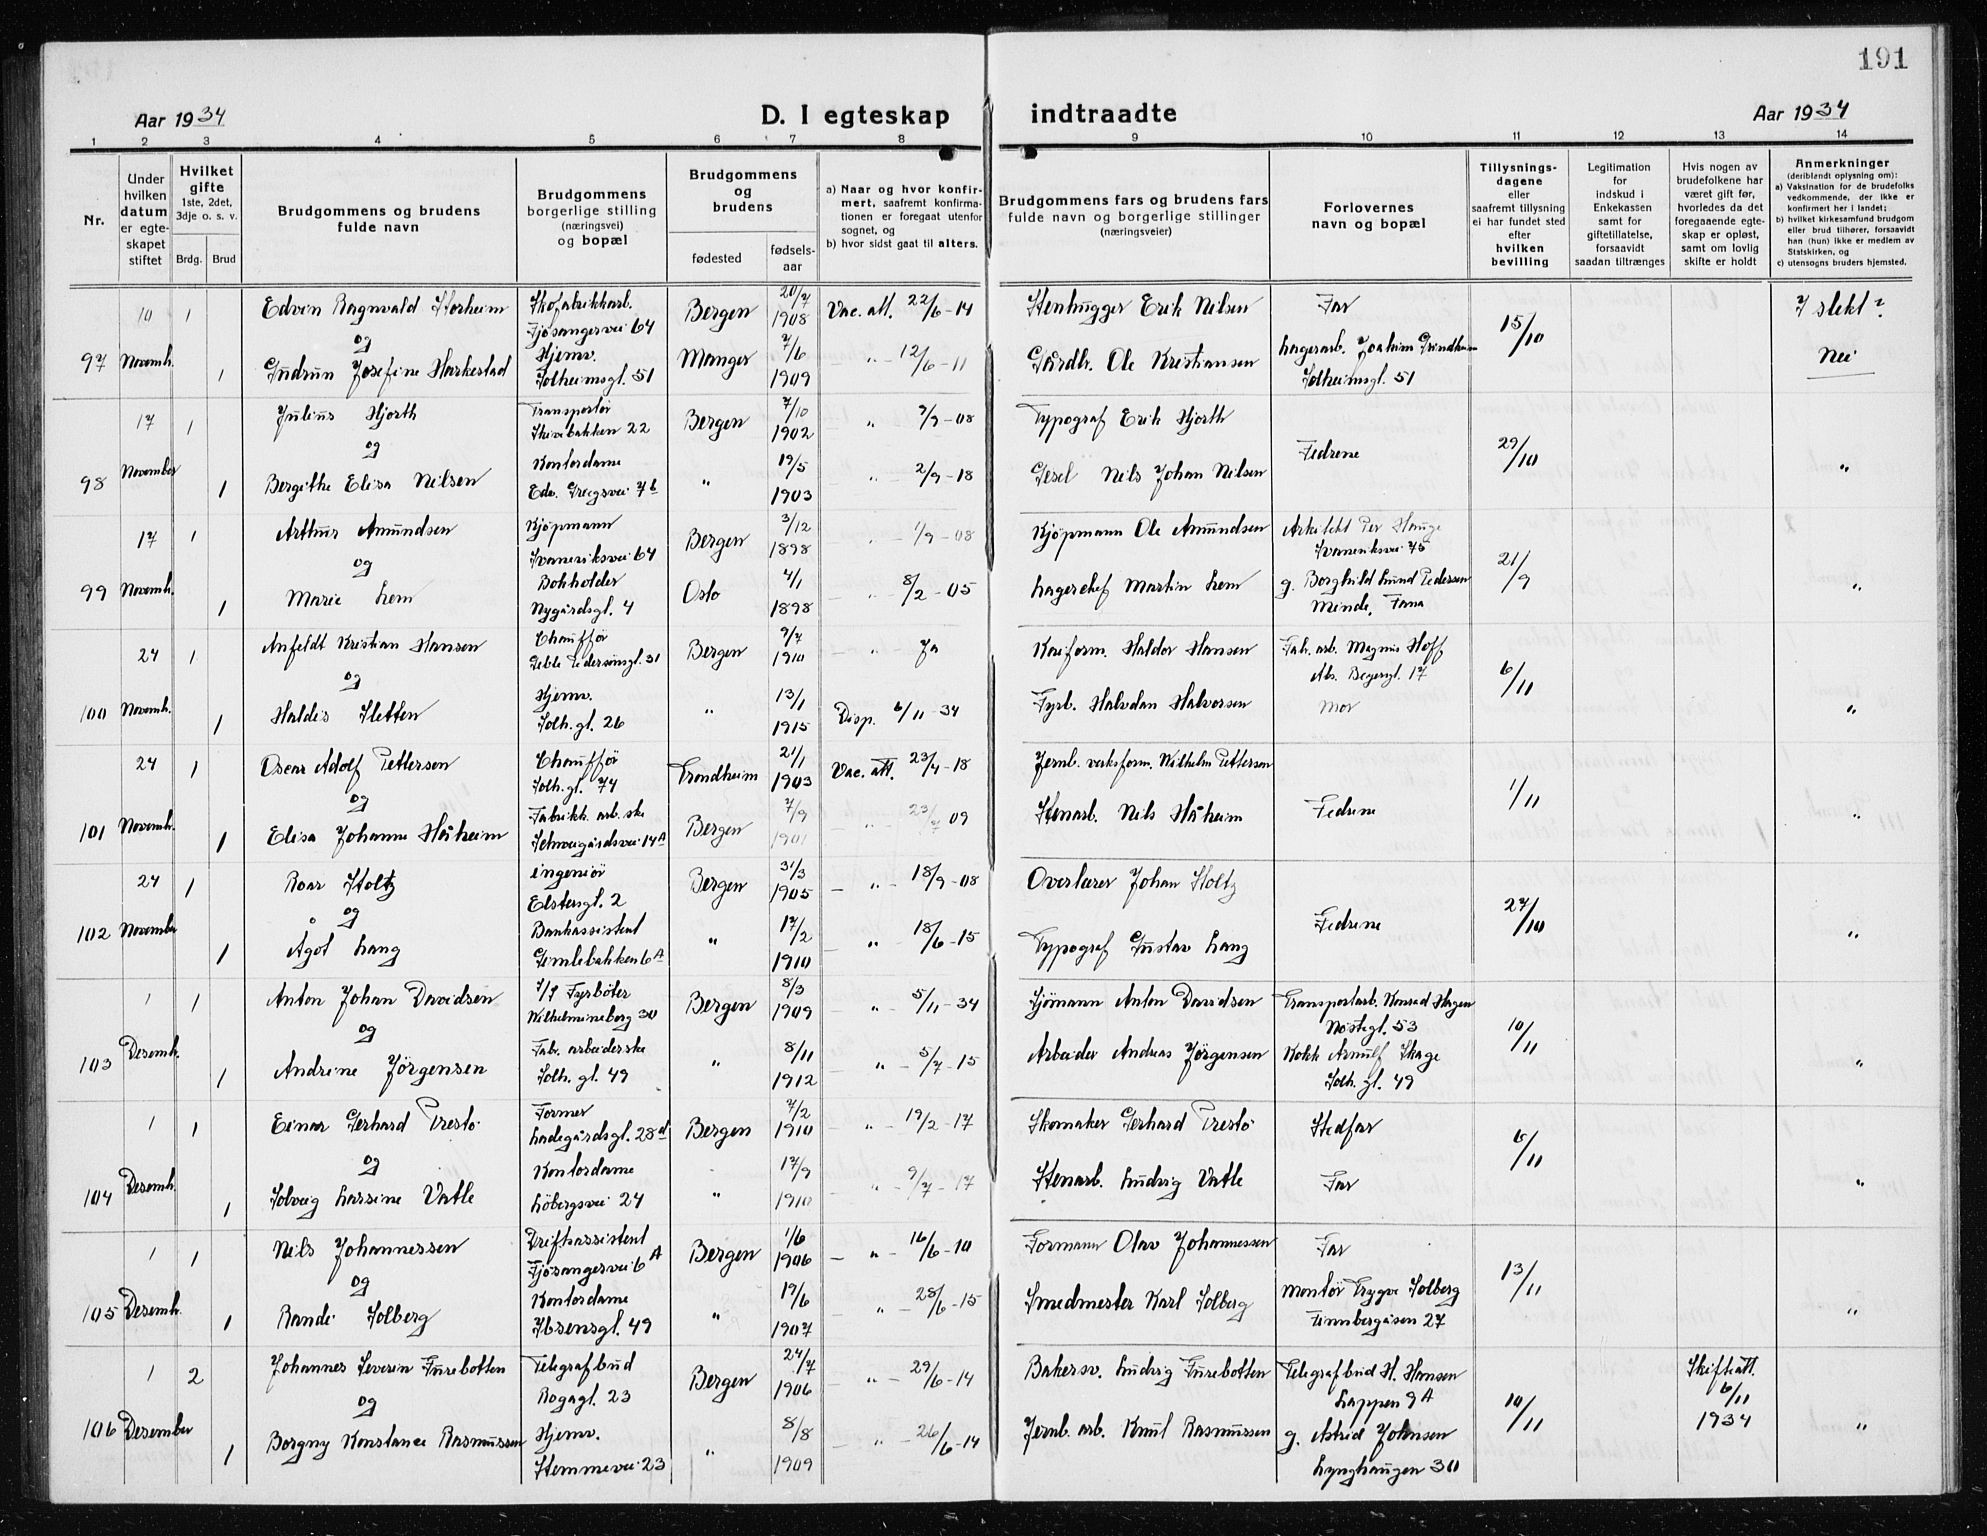 191
Aar 1934
D. I egteskap indtraadte
Aar 1934
1 2 3 4 5 6 7 8 9 10 11 12 13 14
Nr.
Under hvilken datum er egteskapet stiftet
Hvilket gifte 1ste, 2det, 3dje o. s. v.
Brdg. Brud
Brudgommens og brudens fulde navn
Brudgommens borgerlige stilling (næringsvei) og bopæl
Brudgommens og brudens
fødested
fødselsaar
a) Naar og hvor konfirmert, saafremt konfirmationen er foregaat utenfor sognet, og
b) hvor sidst gaat til alters.
Brudgommens fars og brudens fars fulde navn og borgerlige stillinger (næringsveier)
Forlovernes navn og bopæl
Tillysningsdagene eller saafremt tillysning ei har fundet sted efter hvilken bevilling
Legitimation for indskud i Enkekassen samt for giftetillatelse, forsaavidt saadan tiltrænges
Hvis nogen av brudefolkene har været gift før, hvorledes da det foregaaende egteskap er opløst, samt om lovlig skifte er holdt
Anmerkninger (deriblandt oplysning om):
a) Vaksination for de brudefolks vedkommende, der ikke er konfirmert her i landet;
b) hvilket kirkesamfund brudgom eller brud tilhører, forsaavidt han (hun) ikke er medlem av Statskirken, og
c) utensogns bruders hjemsted.
97 10 Novemb. 1 Edvin Ragnvald Storheim Skofabrikkarb. Fjøsangervei 64 Bergen 20/7 1908 Vac. att. 22/6-14 Stenhugger Erik Nilsen Far 15/10 I slekt?
og
1 Gudrun Josefine Harkestad Hjemv. Solheimsgt. 51 Manger 7/6 1909 " 12/6-11 Gårdbr. Ole Kristiansen Lagerarb. Joakim Grindheim Solheimsgt. 51 Nei
98 17 November 1 Julius Hjorth Transportør Skivebakken 22 Bergen 7/10 1902 " 7/9-08 Typograf Erik Hjorth Fedrene 29/10 "
og
1 Bergithe Elisa Nilsen Kontordame Edv. Griegsvei 7b " 19/5 1903 " 2/9-18 Gesel Nils Johan Nilsen
99 17 Novemb. 1 Arthur Amundsen Kjøpmann Ivarneviksvei 64 Bergen 3/12 1898 " 1/9-08 Kjøpmann Ole Amundsen Arkitekt Per Hauge 75 21/9 "
og
1 Marie Lem Bokholder Nygårdsgt. 4 Oslo 4/1 1898 " 8/2-05 Lagerchef Martin Lem g. Borghild Lund Pedersen Minde, Fana
100 24 Novemb. 1 Anfeldt Kristian Hansen Chauffør Pedersensgt. 31 Bergen 9/7 1910 " Ja Haldor Hansen Fab. arb. Magnus Hoff 17 6/11 "
og
1 Haldis Sletten Hjemv. Solh. gt. 26 " 13/1 1915 Disp. 6/11-34 Fyrb. Halvdan Halvorsen Mor
101 24 Novemb. 1 Oscar Adolf Pettersen Chauffør Solh. gt. 74 Trondheim 21/1 1903 Vac. att. 23/4-18 Jernb. verksform. Wilhelm Pettersen Fedrene 1/11 "
og
1 Elisa Johanne Håheim Fabrikk. arb. ske Schweigårdsvei 14A Bergen 7/9 1901 " 23/7 09 Stenarb. Nils Håheim
102 24 November 1 Roar Stoltz Ingeniør Elstersgt. 2 Bergen 31/3 1905 " 18/9-08 Overlærer Johan Stoltz Fedrene 27/10 "
og
1 Ågot Lang Bankassistent Gimlebakken 6A " 17/2 1910 " 18/6-15 Typograf Gustav Lang
103 1 Desemb. 1 Anton Johan Davidsen Fyrbøter Wilhelmineborg 30 Bergen 8/3 1909 " 5/11-34 Sjømann Anton Davidsen Transportarb. Konrad Hagen Nøstegt. 53 10/11 "
og
1 Andrine Jörgensen Fab. arbeiderske Solh. gt. 49 " 8/11 1912 " 5/7-15 Arbeider Andreas Jörgensen Kokk Arnulf Skage Solh. gt. 49
104 1 Desemb. 1 Einar Gerhard Prestö Former Ladegårdsgt. 28d Bergen 7/2 1910 " 19/2-17 Skomaker Gerhard Prestö Stedfar 6/11 "
og
1 Solveig Larsine Vatle Kontordame Löbergsvei 24 " 17/9 1910 " 9/7-17 Stenarb. Ludvig Vatle Far
105 1 Desemb. 1 Nils Johannessen Driftsassistent Fjøsangervei 6A Bergen 1/6 1906 " 16/6-10 Formann Olav Johannessen Far 13/11 "
og
1 Randi Solberg Kontordame Ibsensgt. 49 " 19/6 1907 " 28/6-15 Smedmester Karl Solberg Montør Trygve Solberg Finnbergåsen 27
106 1 Desember 2 Johannes Severin Furebotten Telegrafbud Rogagt. 23 Bergen 24/7 1906 " 29/6-14 Bakersv. Ludvig Furebotten Telegrafbud H. Hansen Lappen 9A 10/11 Skifteatt. 6/11 1934 "
og
1 Borgny Konstance Rasmussen Hjemv. Stemmevei 23 " 8/8 1909 " 26/6-14 Jernb. arb. Knut Rasmussen g. Astrid Johnsen Lynghaugen 30